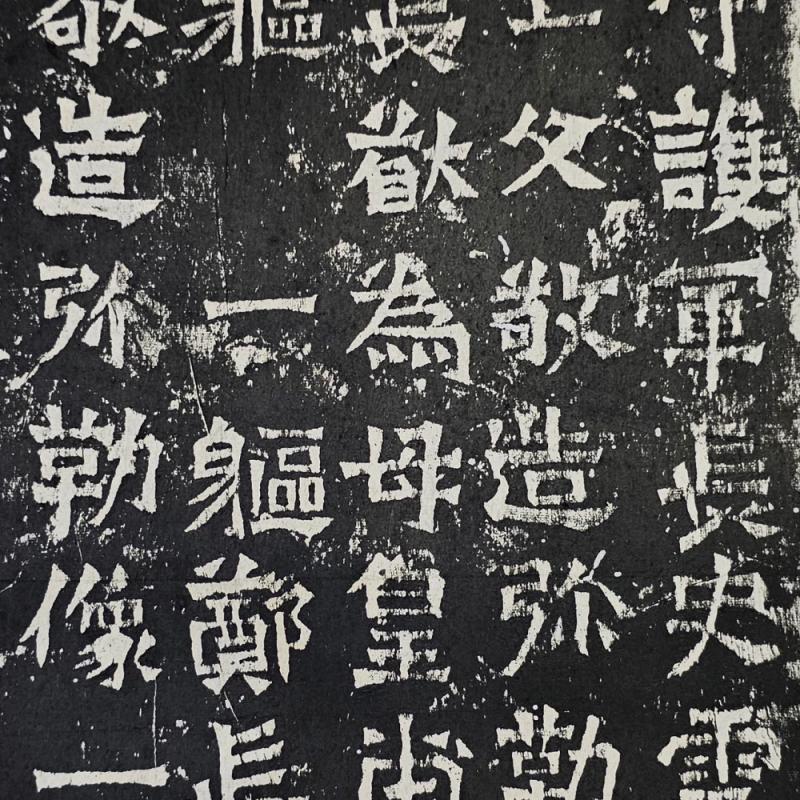 守護軍長史雲
亡父敬造弥勒
長猷為母皇甫
軀一軀鄭長
敬造弥勒像一